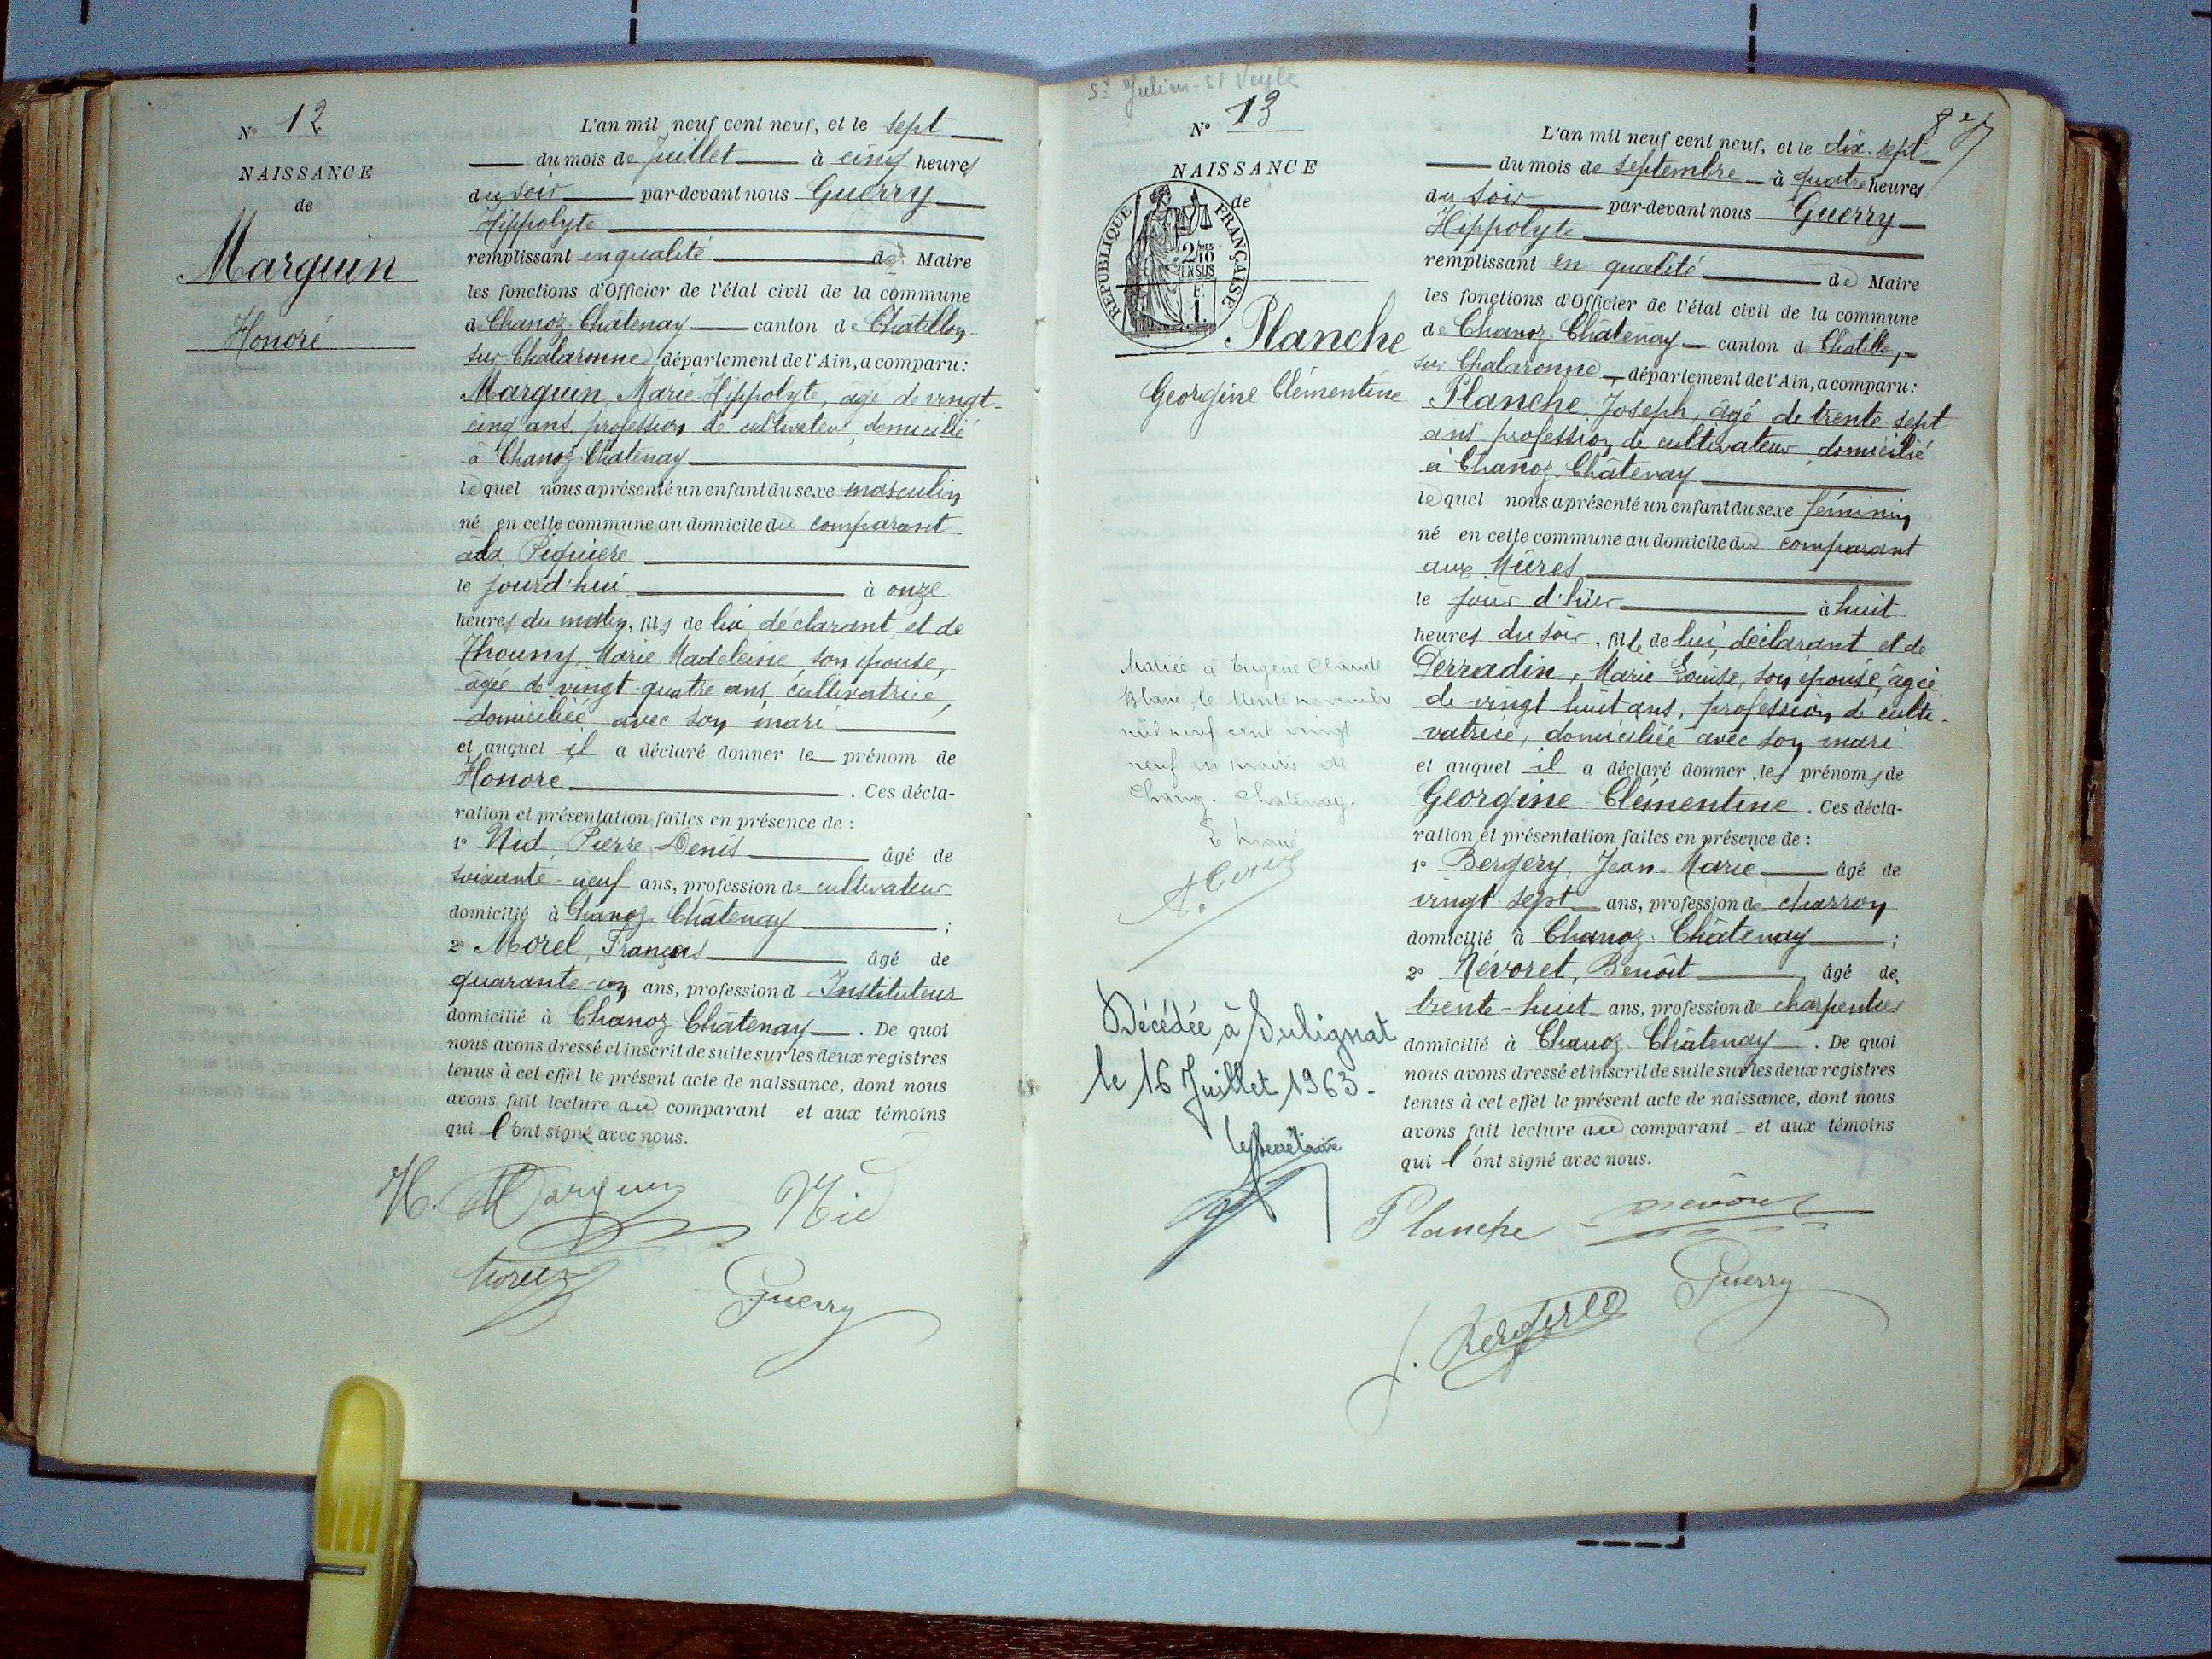 N° 12
NAISSANCE
de
Marguin
Honoré
L'an mil neuf cent neuf, et le sept
du mois de Juillet à cinq heures
du soir par-devant nous Guerry
Hippolyte
remplissant en qualité de Maire
les fonctions d'Officier de l'état civil de la commune
de Chanoz-Châtenay canton de Châtillon
sur Chalaronne, département de l'Ain, a comparu :
Marguin, Marie Hippolyte, âgé de vingt-
cinq ans, profession de cultivateur, domicilié
à Chanoz-Châtenay
lequel nous a présenté un enfant du sexe masculin
né en cette commune au domicile du comparant
à la
le jourd'hui à onze
heures du matin, fils de lui déclarant, et de
Thouny, Marie Madeleine, son épouse,
âgée de vingt-quatre ans, cultivatrice,
domiciliée avec son mari
et auquel il a déclaré donner le prénom de
Honoré . Ces décla-
ration et présentation faites en présence de :
1° Nid, Pierre Denis âgé de
soixante-neuf ans, profession de cultivateur
domicilié à Chanoz-Châtenay ;
2° Morel, François âgé de
quarante-un ans, profession d Instituteur
domicilié à Chanoz-Châtenay . De quoi
nous avons dressé et inscrit de suite sur les deux registres
tenus à cet effet le présent acte de naissance, dont nous
avons fait lecture au comparant et aux témoins
qui l'ont signé avec nous.
H. Marguin Nid
Morel Guerry
St Julien-St Veyle
N° 13
NAISSANCE
de
RÉPUBLIQUE FRANÇAISE
2/10
EN SUS
F.
1.
Planche
Georgine Clémentine
L'an mil neuf cent neuf, et le dix-sept
du mois de septembre à quatre heures
du soir par-devant nous Guerry
Hippolyte
remplissant en qualité de Maire
les fonctions d'Officier de l'état civil de la commune
de Chanoz-Châtenay canton de Châtillon
sur Chalaronne département de l'Ain, a comparu :
Planche, Joseph, âgé de trente-sept
ans, profession de cultivateur, domicilié
à Chanoz-Châtenay
lequel nous a présenté un enfant du sexe féminin
né en cette commune au domicile du comparant
aux Mûres
le jour d'hier à huit
heures du soir, fille de lui, déclarant et de
Perradin, Marie-Louise, son épouse, âgée
de vingt huit ans, profession de culti-
vatrice, domiciliée avec son mari
et auquel il a déclaré donner les prénoms de
Georgine Clémentine . Ces décla-
ration et présentation faites en présence de :
1° Bergery, Jean-Marie âgé de
vingt-sept ans, profession de charron
domicilié à Chanoz-Châtenay ;
2° Névoret, Benoît âgé de
trente-huit ans, profession de charpentier
domicilié à Chanoz-Châtenay . De quoi
nous avons dressé et inscrit de suite sur les deux registres
tenus à cet effet le présent acte de naissance, dont nous
avons fait lecture au comparant et aux témoins
qui l'ont signé avec nous.
Mariée à Eugène Claude
Blanc le trente novembre
mil neuf cent vingt
neuf en mairie de
Chanoz-Châtenay.
Décédée à Sulignat
le 16 Juillet 1963.
Le Secrétaire
Planche Névoret
Guerry
J. Bergery